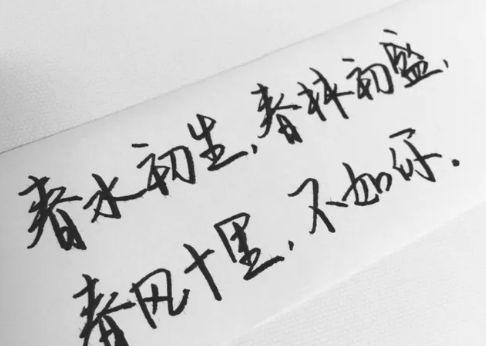 春水初生，春林初盛，
春风十里，不如你．